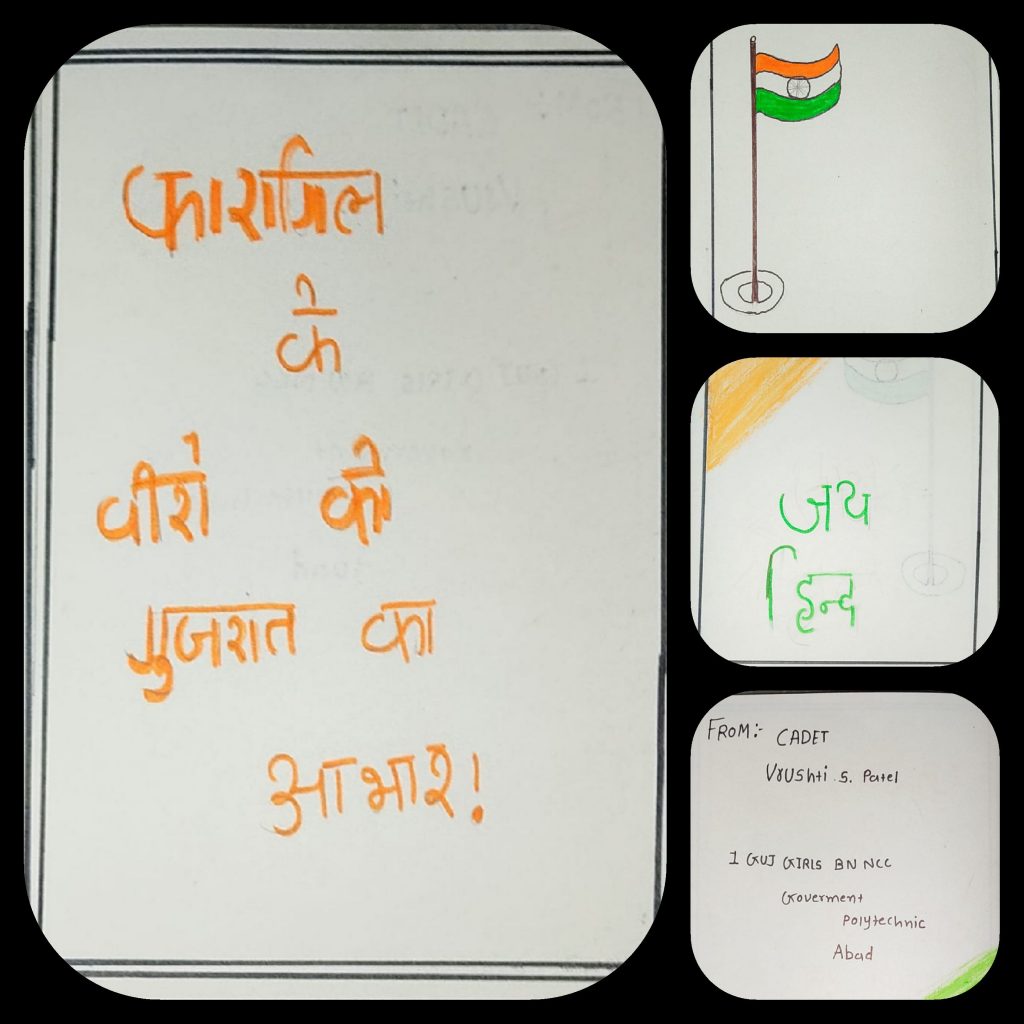 कारगिल
के
वीरो को
गुजरात का
आभार!
जय
हिन्द
FROM:- CADET
Vrushti S. Patel
1 GUJ GIRLS BN NCC
Goverment
Polytechnic
Abad